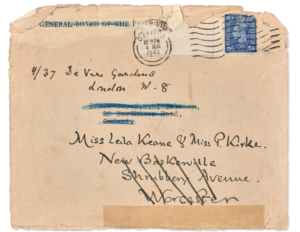 GENERAL BOARD OF THE
4/37 De Vere Gardens
London W-8
Road,
Miss Leila Keane & Miss P. Kirke.
New Baskerville
Shrubbery Avenue.
Worcester